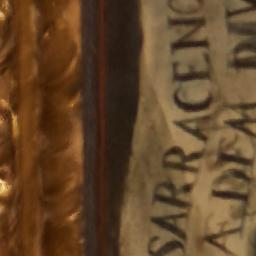 SARRACENO
ADEM DIV